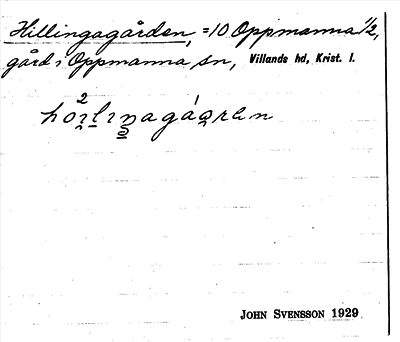 Hillingagården, =10 Oppmanna 1/2,
gård i Oppmanna sn, Villands hd, Krist. l.
JOHN SVENSSON 1929